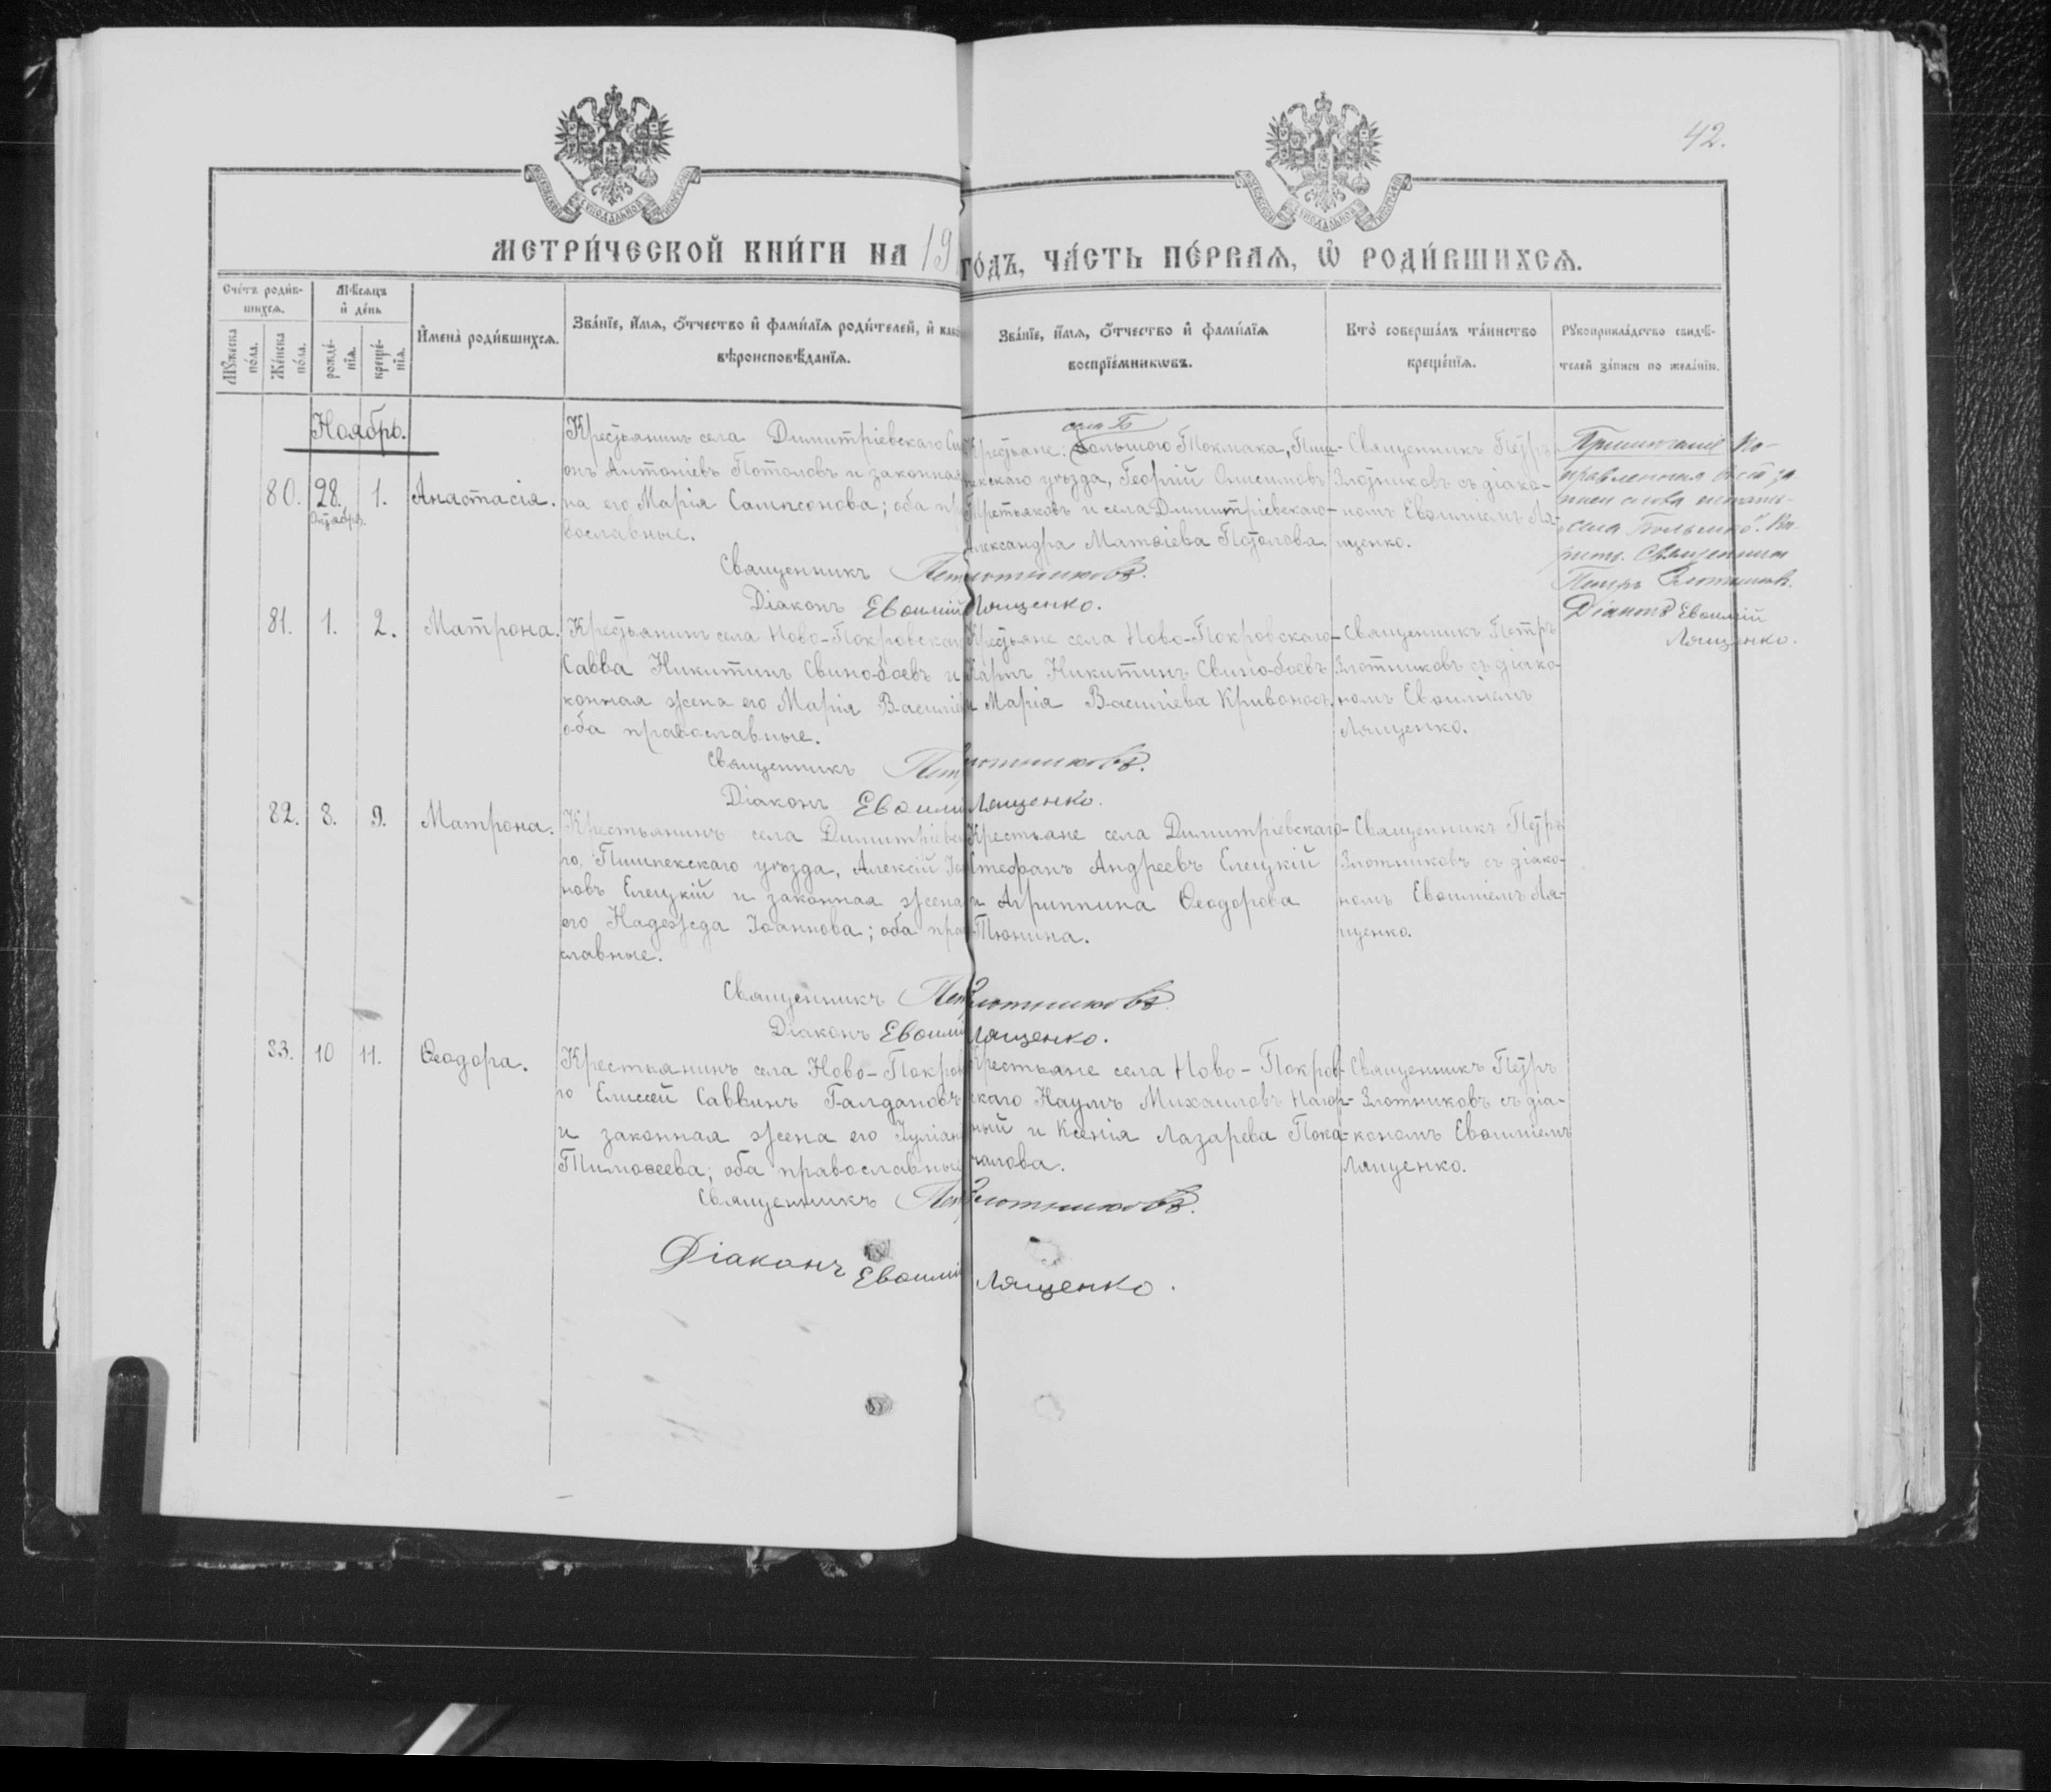 42.
МЕТРИ́ЧЕСКОЙ КНИ́ГИ НА 19
ГО́ДЪ, ЧА́СТЬ ПЕ́РВАЯ, Ѡ҆ РОДИ́ВШИХСЯ.
Сче́тъ роди́в-
шихся.
Му́жеска
по́ла.
Же́нска
по́ла.
Мѣ́сяцъ
и҆ де́нь
рожде́-
нїя.
креще́-
нїя.
И҆мена̀ роди́вшихся.
Зва́нїе, и҆́мя, ѻ҆́тчество и҆ фами́лїя роди́телей, и҆ како
вѣроисповѣ́данїя.
Зва́нїе, и҆́мя, ѻ҆́тчество и҆ фами́лїя
воспрїе́мникѡвъ.
Кто̀ соверша́лъ та́инство
креще́нїя.
Рꙋкоприкла́дство свидѣ́-
телей за́писи по жела́нїю.
Ноябрь.
80.
28.
Октября.
1.
Анастасія.
Крестьянинъ села Димитріевскаго Си
онъ Антоніевъ Потоловъ и законная
на его Марія Сампсонова; оба пра
вославные.
села Б
Крестьяне: Большого Токмака, Пиш-
пекскаго уѣзда, Георгій Онисимовъ
Третьяковъ и села Димитріевскаго
Александра Матѳіева Потолова.
Священникъ Петръ
Злотниковъ съ діако-
номъ Евѳиміемъ Ля-
щенко.
Примѣчаніе По-
правленная въ сей за
писи слова читать
„села Большо“. Вѣ
рить. Священникъ
Петръ Злотниковъ.
Діаконъ Евѳимій
Лященко.
Священникъ Петръ Злотниковъ.
Діаконъ Евѳимій Лященко.
81.
1.
2.
Матрона.
Крестьянинъ села Ново-Покровскаго
Савва Никитинъ Свино-боевъ и
конная жена его Марія Василіе
оба православные.
Крестьяне села Ново-Покровскаго
Карпъ Никитинъ Свино-боевъ
и Марія Васильева Кривоносъ.
Священникъ Петръ
Злотниковъ съ діако-
номъ Евѳиміемъ
Лященко.
Священникъ Петръ Злотниковъ.
Діаконъ Евѳимій Лященко.
82.
8.
9.
Матрона.
Крестьянинъ села Димитріевска
го, Пишпекскаго уѣзда, Алексій Іоан
новъ Елецкій и законная жена
его Надежда Іоаннова; оба пра
славные.
Крестьяне села Димитріевскаго
Стефанъ Андреевъ Елецкій
и Агриппина Ѳеодорова
Тюнина.
Священникъ Петръ
Злотниковъ съ діако-
номъ Евѳиміемъ Ля-
щенко.
Священникъ Петръ Злотниковъ
Діаконъ Евѳимій Лященко.
83.
10
11.
Ѳеодора.
Крестьянинъ села Ново-Покров
го Елисей Саввинъ Галдановъ
и законная жена его Іуліан
Тимоѳеева; оба православные
Крестьяне села Ново-Покров-
скаго Наумъ Михаиловъ Нагор-
ный и Ксенія Лазарева Пока-
чалова.
Священникъ Петръ
Злотниковъ съ діа-
кономъ Евѳиміемъ
Лященко.
Священникъ Петръ Злотниковъ.
Діаконъ Евѳимій Лященко.